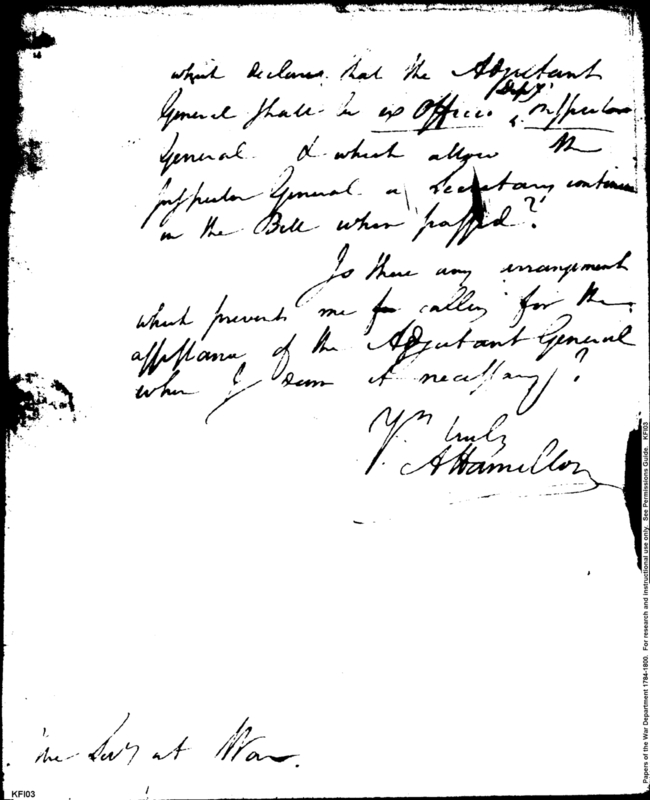 which declares that the Adjutant
General shall be ex Officio Depy. Inspector
General & which allows the
Inspector General a Secretary continue
in the Bill when passed?
Is there any arrangement
which prevents me for calling for the
assistance of the Adjutant General
when I deem it necessary?
Yrs truly
A Hamilton
The Secy at War.
KFI03
Papers of the War Department 1784-1800. For research and instructional use only. See Permissions Guide. KFI03